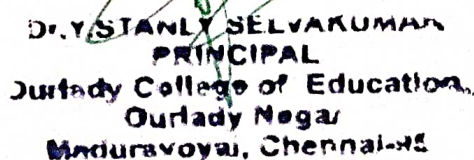 Dr. Y. STANLY SELVAKUMAR
PRINCIPAL
Ourlady College of Education,
Ourlady Nagar
Maduravoyal, Chennai-95